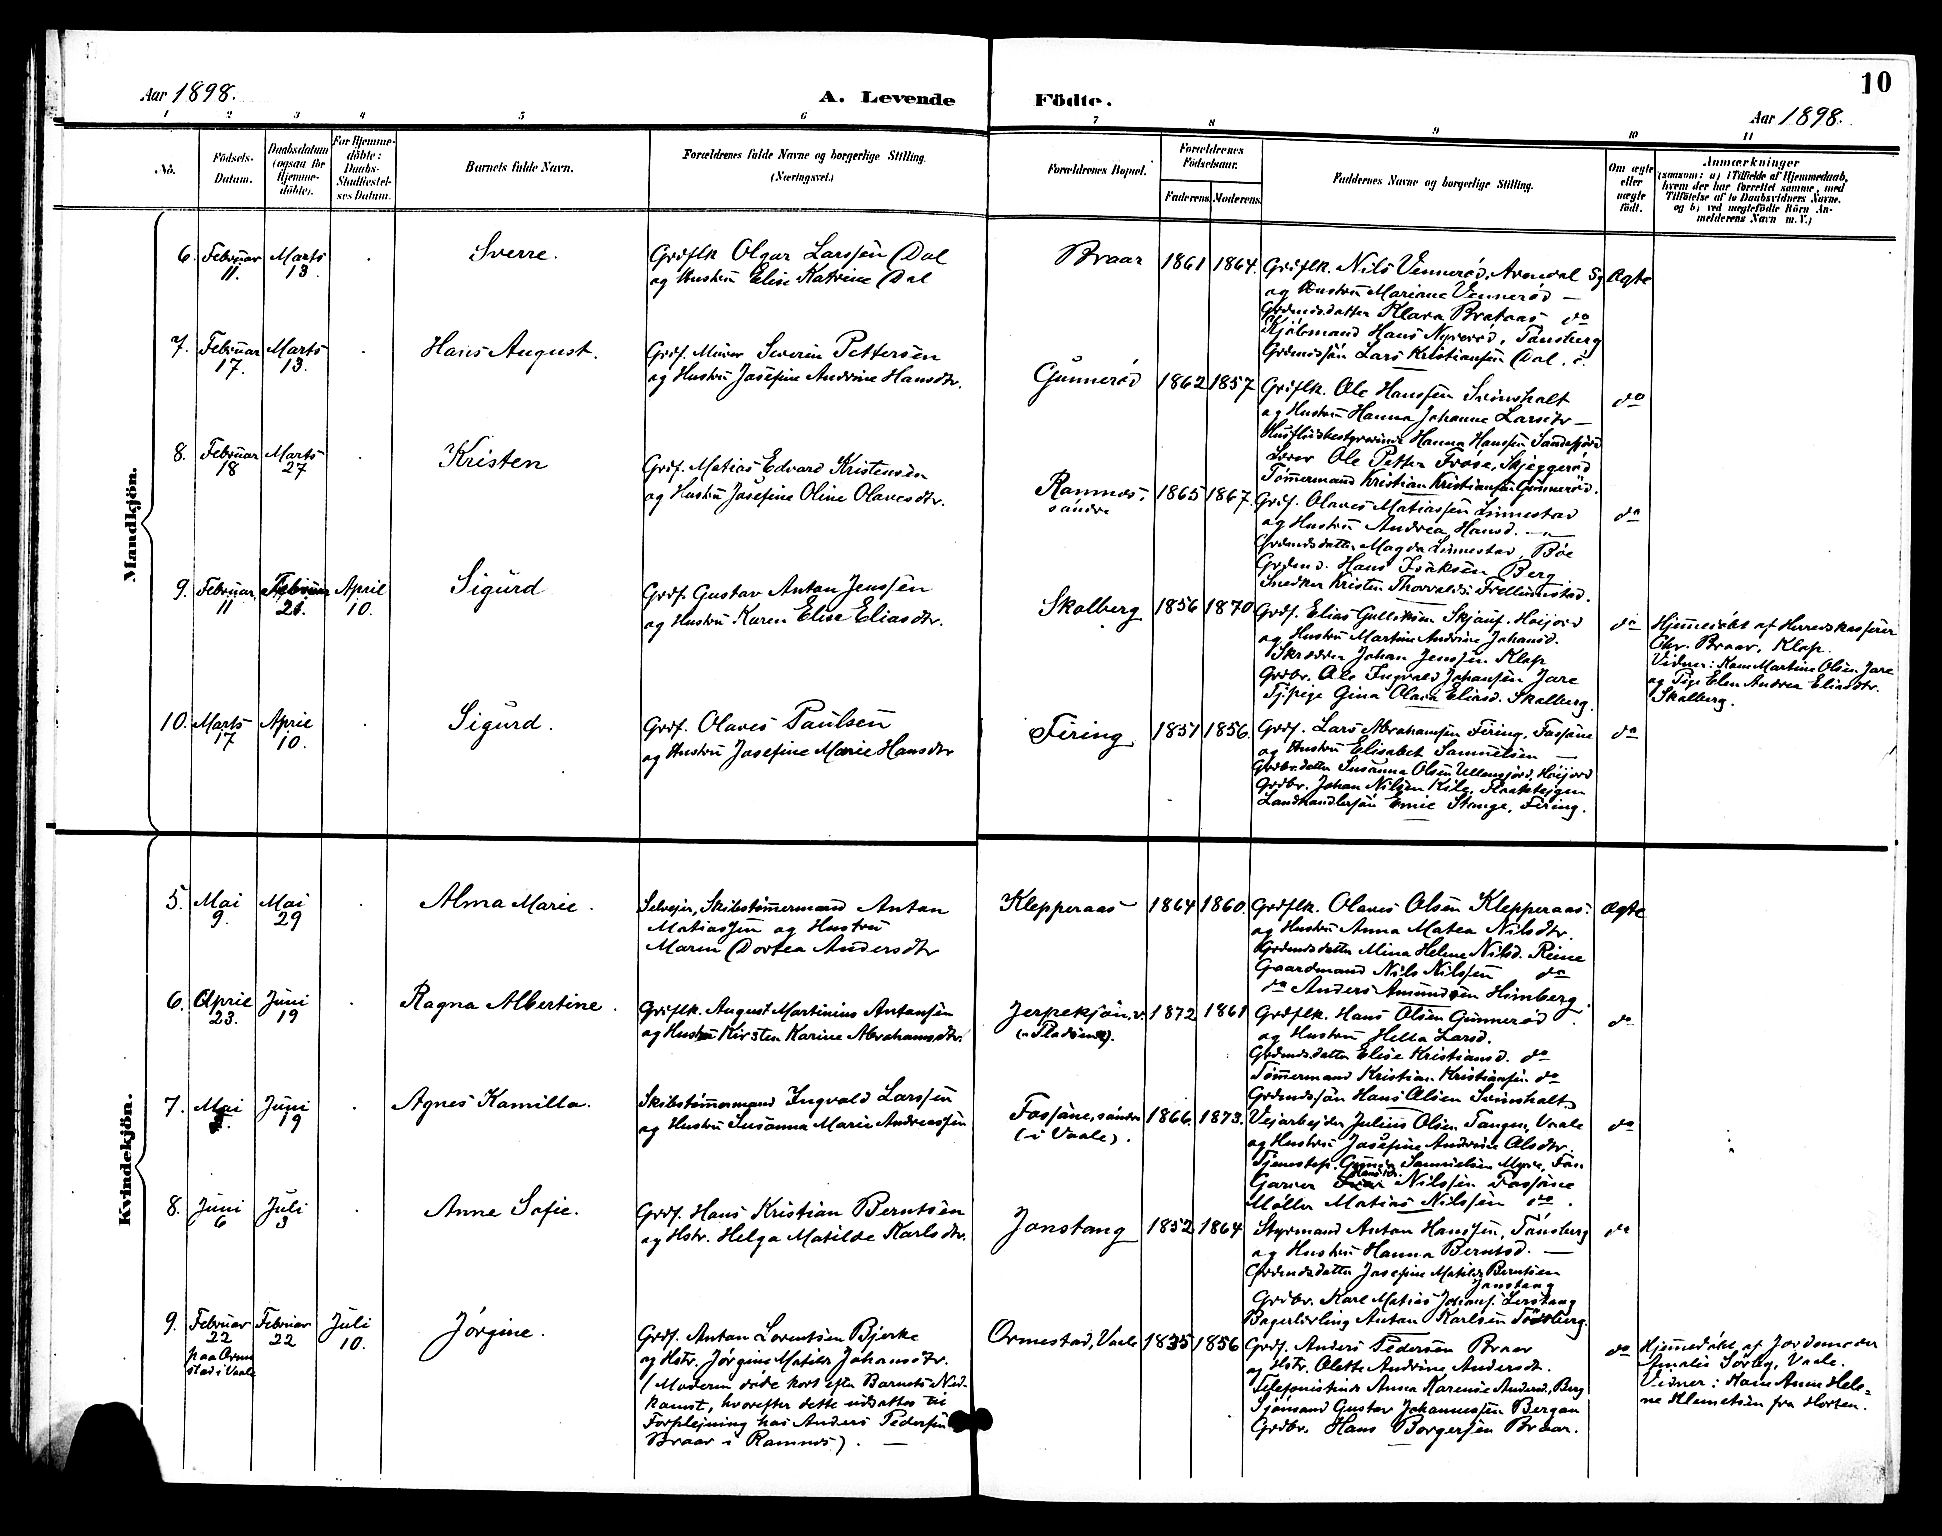 10
Aar 1898.
A. Levende Födte.
Aar 1898.
1 2 3 4 5 6 7 8 9 10 11
No.
Födsels-
Datum.
Daabsdatum
(ogsaa for
Hjemme-
döbte).
For Hjemme-
döbte:
Daabs-
Stadfæstel-
ses Datum.
Barnets fulde Navn.
Forældrenes fulde Navne og borgerlige Stilling.
(Næringsvei.)
Forældrenes Bopæl.
Forældrenes
Födselsaar.
Faderens Moderens
Faddernes Navne og borgerlige Stilling.
Om ægte
eller
uægte
födt.
Anmærkninger
(saasom: a) i Tilfælde af Hjemmedaab,
hvem der har forrettet samme, med
Tilföielse af to Daabsvidners Navne.
og b) ved uægtefödte Börn An-
melderens Navn m. V.)
Mandkjön.
6. Februar 11. Marts 13. Sverre.
Grdflk Olgar Larssen Dal
og Hustru Elise Katrine Dal
Braar 1861 1864.
Grdflk. Nils Vennerød, Arendal Sg
og Hustru Mariane Vennerød —
Grdmdsdatter Klara Brataas do
Kjøbmand Hans Nyrerød, Tønsberg
Grdmdssøn Lars Kristiansen Dal.
Ægte
7. Februar 17. Marts 13. Hans August.
Grdf. Murer Severin Pettersen
og Hustru Josefine Andrine Hansdtr.
Gunnerød 1862 1857
Grdflk. Ole Hanssen Svinsholt
og Hustru Hanna Johanne Larsdtr —
Husflidsbestyrerinde Hanna Hanssen Sandefjord
Lærer Ole Petter Frøse, Skjeggerød
Tømmermand Kristian Kristiansen Gunnerød.
do
8. Februar 18 Marts 27 Kristen
Grdf. Matias Edvard Kristensen
og Hustru Josefine Oline Olavesdtr.
Ramnæs, søndre 1865 1867.
Grdf. Olaves Matiassen Linnestad
og Hustru Andrea Hansd. —
Grdmdsdatter Magda Linnestad, Bøe
Grdmd. Hans Isaksen Berg
Snedker Kristen Thorvaldsen
do
9. Februar 11 Februar 21. April 10. Sigurd
Grdf. Gustav Anton Jenssen
og Hustru Karen Elise Eliasdtr.
Skalberg 1856 1870
Grdf. Elias Gulliksen Skjauf. Höijord
og Hustru Martine Andrine Johansd.
Skrædder Johan Jenssen Klop
Grdbr. Ole Ingvald Johansen Jare
Tjpige Gina Olava Eliasd. Skalberg.
do
Hjemmedøbt af Herredskasserer
Chr. Braar, Klop.
Vidner: Kone Martine Olsen Jare
og Pige Elen Andrea Eliasdtr.
Skalberg.
10. Marts 17 April 10. Sigurd.
Grdf. Olaves Paulsen
og Hustru Josefine Marie Hansdtr
Firing 1851 1856.
Grdf. Lars Abrahamsen Firing, Fossane
og Hustru Elisabet Samuelsen —
Grdbr.datter Susanna Olsen Ullensjord, Höijord
Grdbr. Johan Nilsen Kile,
Landhandlersøn Emil Stange, Firing.
do
Kvindekjön.
5. Mai 9. Mai 29 Alma Marie.
Selvejer, Skibstømmermand Anton
Matiassen og Hustru
Maren Dortea Andersdtr
Klepperaas 1864 1860.
Grdflk. Olaves Olsen Klepperaas.
og Hustru Anna Matea Nilsdtr.
Grdmdsdatter Mina Helene Nilsd. Reine
Gaardmand Nils Nilssen do
do Anders Amundsen Himberg
Ægte
6. April 23. Juni 19 Ragna Albertine.
Grdflk. August Martinius Antonsen
og Hustru Kirsten Karine Abrahamsdtr.
Jerpekjøn, v. 1872 1861
Grdflk. Hans Olsen Gunnerød
og Hustru Hella Larsd.
Grdmdsdatter Elise Kristiansd. do
Tømmermand Kristian Kristiansen do
Grdmdssøn Hans Olsen Svinsholt
do
7. Mai Juni 19 Agnes Kamilla.
Skibstømmermand Ingvald Larssen
og Hustru Susanna Marie Andreassen
Fossane, søndre
(i Vaale). 1866. 1873.
Vejarbejder Julius Olsen Tangen, Vaale
og Hustru Josefine Andrine Olsdtr
Tjenestepi. Gunda Samuelsen Myre,
Garver Nilssen Fossane
Møller Matias Nilssen do.
do
8. Juni 6 Juli 3 Anne Sofie.
Grdf. Hans Kristian Berntsen
og Hstr. Helga Matilde Karlsdtr.
Jonstang 1852 1864
Styrmand Anton Hanssen, Tønsberg
og Hustru Hanna Berntsd. —
Grdmdsdatter Josefine Matilde Berntsen
Jonstang
Grdbr. Karl Matias Johansf. Lerstang
Bagerlærling Anton Karlsen Tönsberg.
do
9. Februar 22 paa Orme
stad i Vaale Februar 22 Juli 10. Jørgine.
Grdf. Anton Lorentsen Bjerke
og Hstr. Jørgine Matilde Johansdtr.
(Moderen døde kort efter Barnets Ned-
komst, hvorefter dette udsattes til
Forplejning hos Anders Pedersen
Braar i Ramnes). —
Ormestad, Vaale 1835 1856
Grdf. Anders Pedersen Braar
og Hstr. Olette Andrine Andersdt.
Telefonistinde Anna Karense Andersd, Berg
Sjömand Gustav Johannessen Bergan
Grdbr. Hans Borgersen Braar.
do
Hjemmedöbt af Jordemoder
Amalie Sørby, Vaale.
Vidner: Kone Anne Hele-
ne Klemetsen fra Horten.